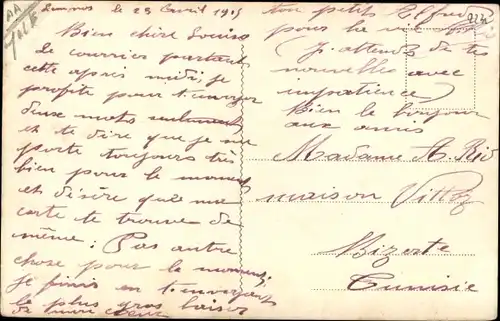 le 23 Avril 1915
Bien chère Louise
Le courrier partant
cette après midi je
profite pour t'envoyer
deux mots seulement
et te dire que je me
porte toujours très
bien pour le moment
et désire que ma
carte te trouve de
même. Pas autre
chose pour le moment,
je finis en t'envoyant
le plus gros baiser
de mon cœur
ton petit Alfred
pour la vie
J'attends de tes
nouvelles avec
impatience
Bien le bonjour
aux amis
Madame A.
maison
Bizerte
Tunisie